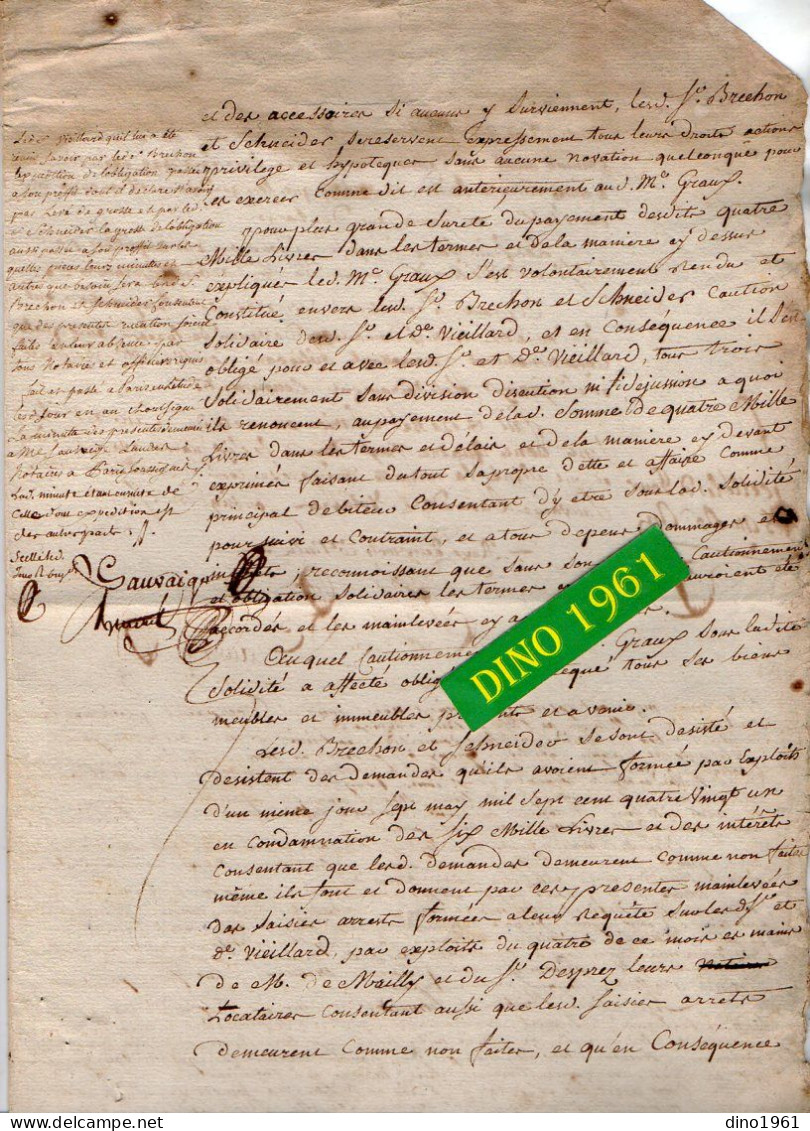 et des accessoires si aucuns y surviennent, lesd. Srs. Brechon
et Schneider se reservent expressement tous leurs droits actions
privilege et hypoteques sans aucune novation quelconque pour
les exercer comme dit est anterieurement aud. Me. Graux.
pour plus grande sureté du payement desdits quatre
Mille Livres dans les termes et de la maniere cy dessus
expliqués led. Me. Graux s'est volontairement rendu et
Constitué envers lesd. Srs. Brechon et Schneider Caution
Solidaire desd. Sr. et De. Vieillard, et en Conséquence il s'est
obligé pour et avec lesd. Sr. et De. Vieillard, tous trois
Solidairement sans division discution ni fidejussion a quoi
ils renoncent, au payement de lad. Somme de quatre Mille
Livres dans les termes et delais et de la maniere cy devant
exprimés faisant du tout sa propre dette et affaire comme
principal debiteur Consentant d'y etre sous lad. Solidité
poursuivi et Contraint, et a tous depens dommages et
interets, reconnoissant que sans son Cautionnement
et obligation solidaires les termes auroient eté
accordés et les mainlevées cy a
Auquel Cautionnement Graux sous ladite
Solidité a affecté obligé hypothequé tous ses biens
meubles et immeubles presents et a venir.
Lesd. Brechon et Schneider se sont desisté et
desistent des demandes qu'ils avoient formée par Exploits
d'un même jour sept may mil sept cent quatre Vingt un
en condamnation des Six Mille Livres et des intérêts
Consentant que lesd. demandes demeurent comme non faites
même ils font et donnent par ces presentes mainlevées
des saisies arrests formées a leur Requête sur lesd. Sr. et
De. Vieillard, par exploits du quatre de ce mois es mains
de M. de Mailly et du Sr. Desprez leurs
Locataires Consentant aussi que lesd. saisies arrets
demeurent comme non faites, et qu'en Conséquence
led. Vieillard qu'il lui a eté
fait savoir par led. Sr. Brechon
l'expedition de l'obligation passée
a son profit dont il declare n'avoir
pas Levé de grosse et par led.
Sr. Schneider la grosse de l'obligation
aussi passée a son profit sur les
quelles pieces leurs minutes et
autres que besoin sera lesd. Srs.
Brechon et Schneider Consentent
que des presentes mention soient
faites en leur absence par
tous Notaires et officiers requis
fait et passé a Paris en l'etude
lesd. jour et an
La minute des presentes demeurée
a Me.
Notaires a Paris soussignés
Lad. minute etant ensuite de
Celle dont expedition est
des autres parts.
Scellé led.
Jour
Sauvaige
DINO 1961
dino1961